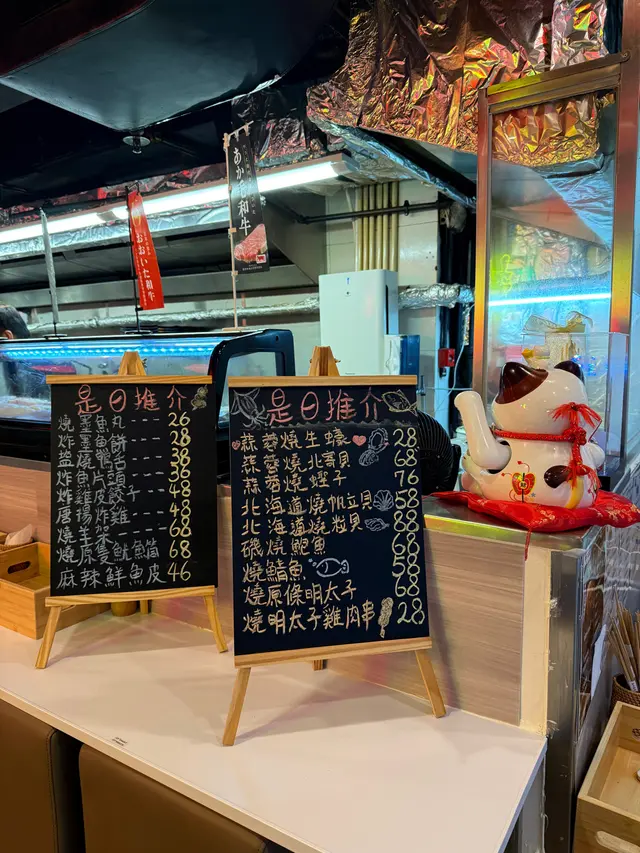 あか
和牛
おおいた和牛
是日推介
燒墨魚丸---26
炸墨魚餅---28
鹽燒鴨舌---38
炸魚片頭---36
炸雞皮餃子--48
唐揚炸雞---48
燒羊架----68
燒原隻魷魚筒 68
麻辣鮮魚皮 46
是日推介
蒜蓉燒生蠔 28
蒜蓉燒北寄貝 68
蒜蓉燒蟶子 76
北海道燒帆立貝 58
北海道燒粒貝 88
磯燒鮑魚 68
燒鯖魚 58
燒原條明太子 68
燒明太子雞肉串 28